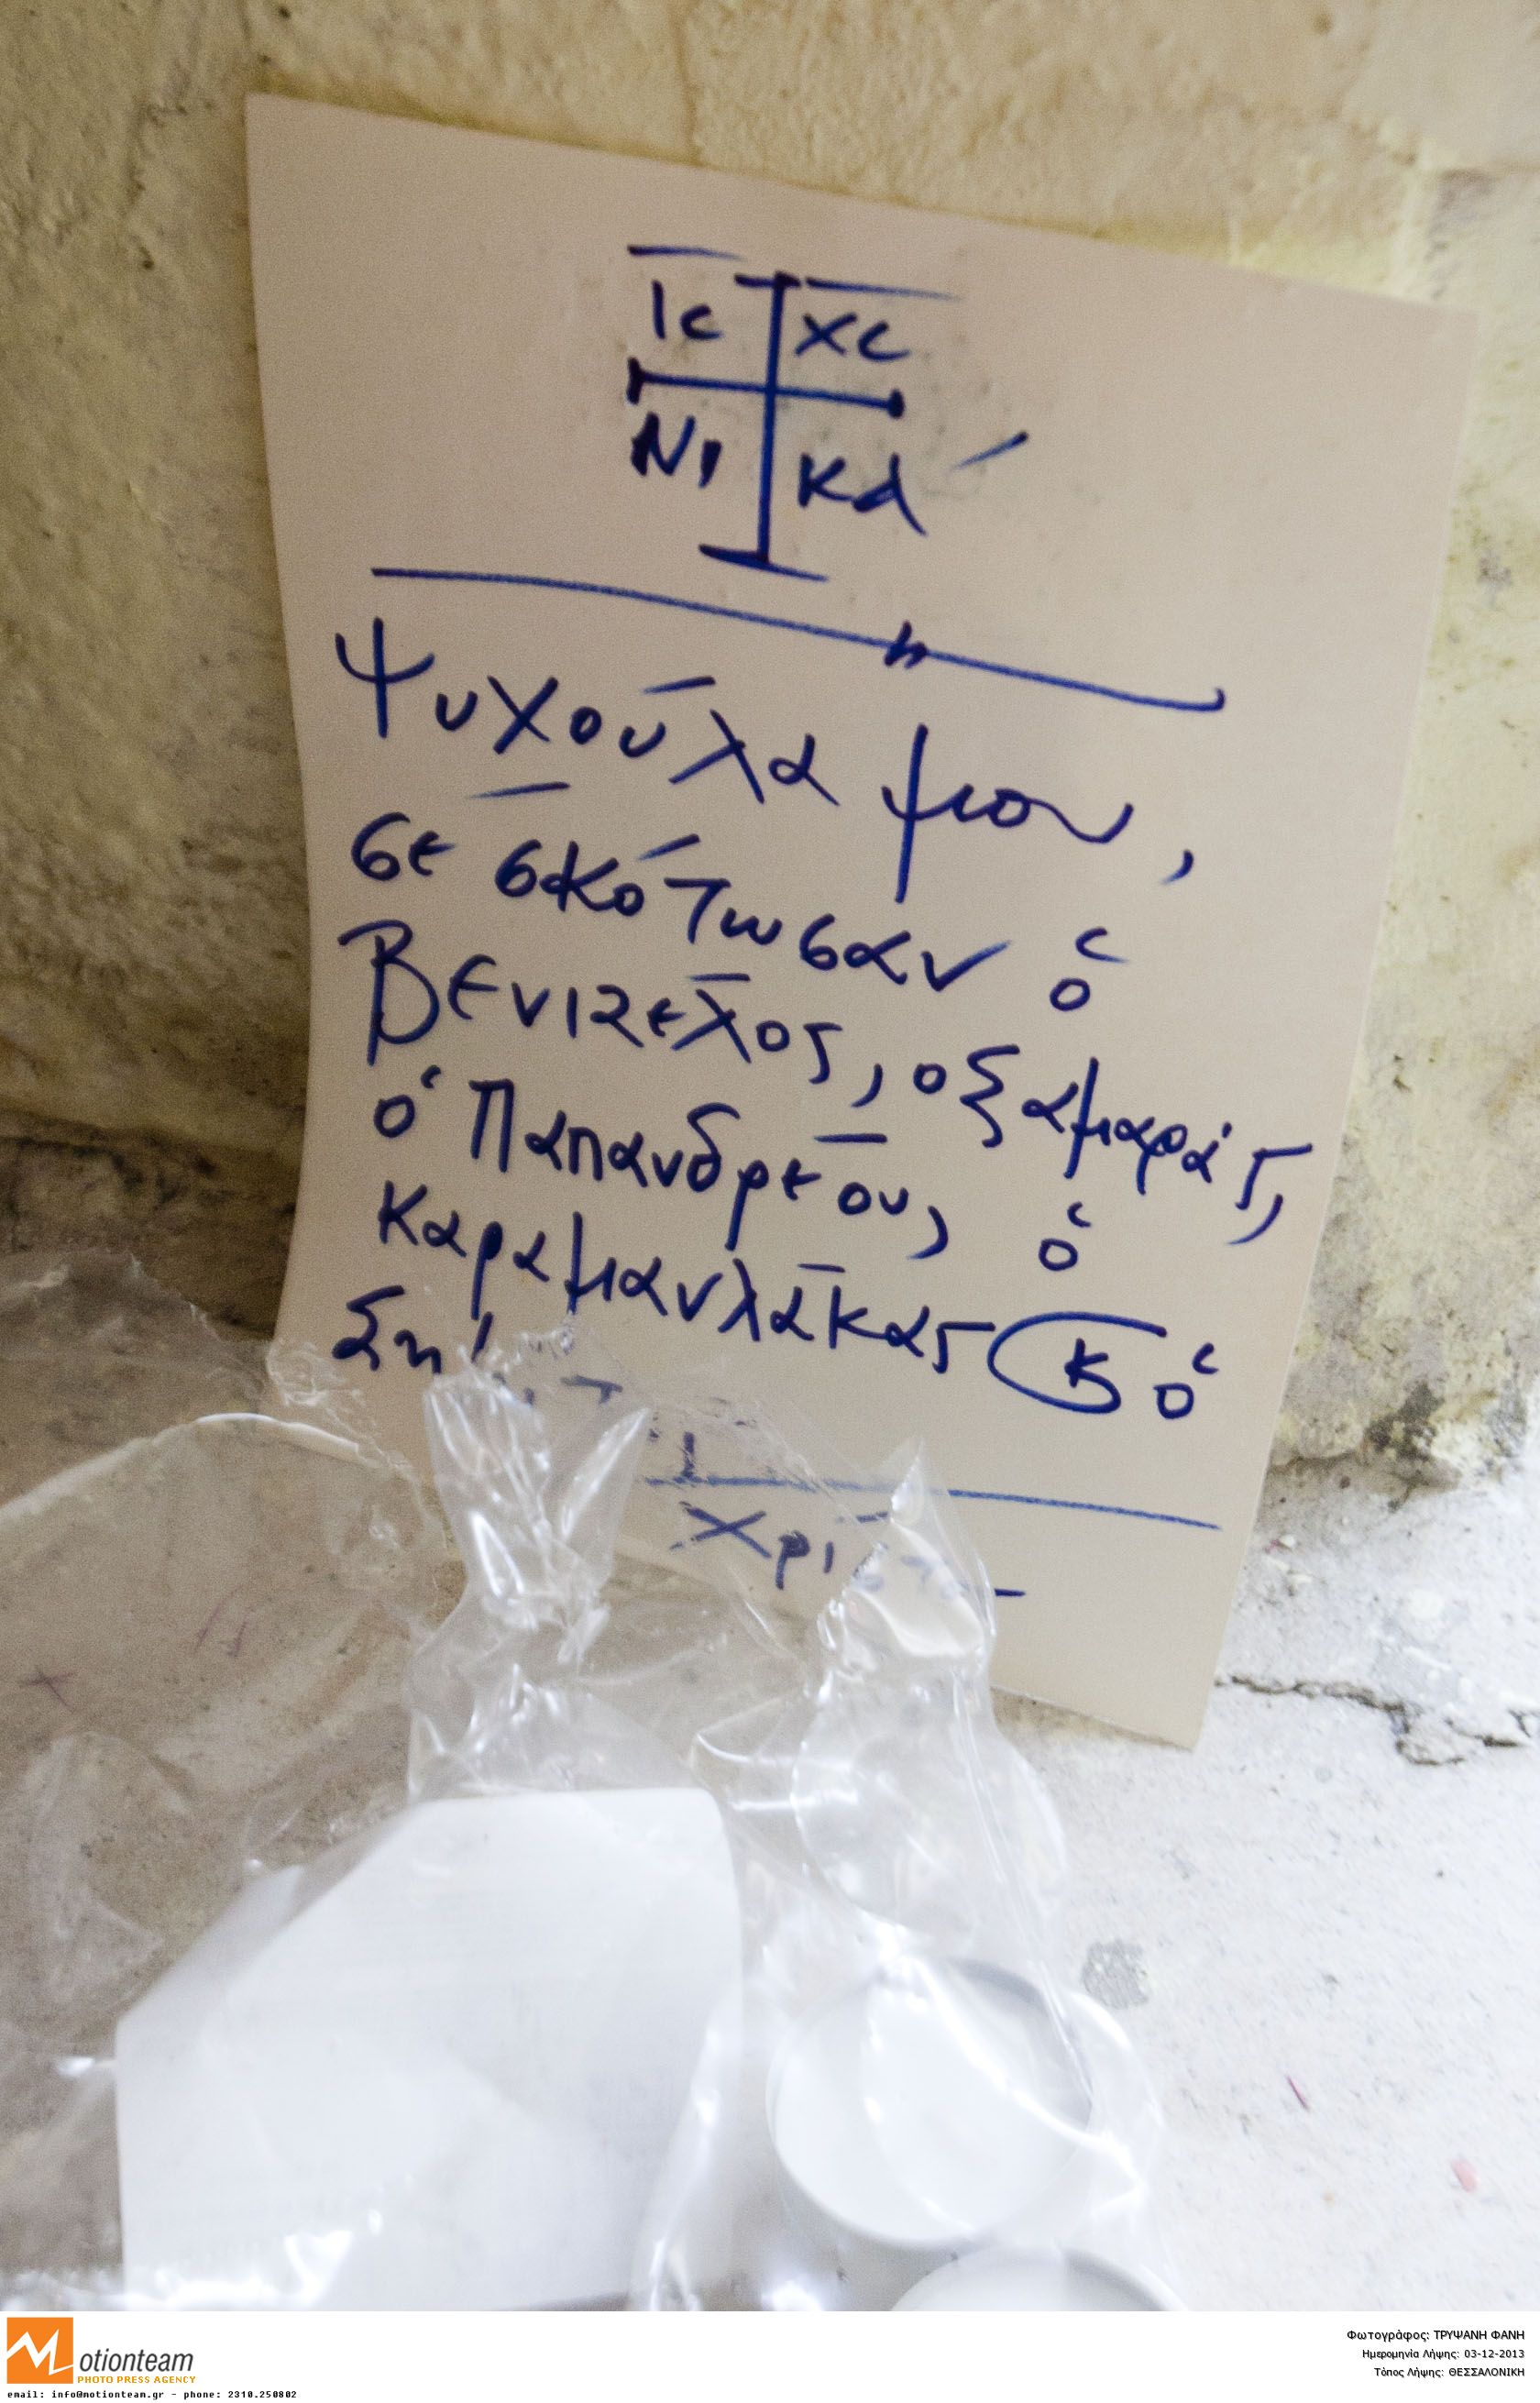 Ις Χς
Νι κά
Ψυχούλα μου,
σέ σκότωσαν ὁ
Βενιζέλος, ο Σαμαράς,
ὁ Παπανδρέου, ὁ
Καραμανλάκας κ ὁ
Motionteam
PHOTO PRESS AGENCY
email: info@motionteam.gr - phone: 2310.250802
Φωτογράφος: ΤΡΥΨΑΝΗ ΦΑΝΗ
Ημερομηνία Λήψης: 03-12-2013
Τόπος Λήψης: ΘΕΣΣΑΛΟΝΙΚΗ